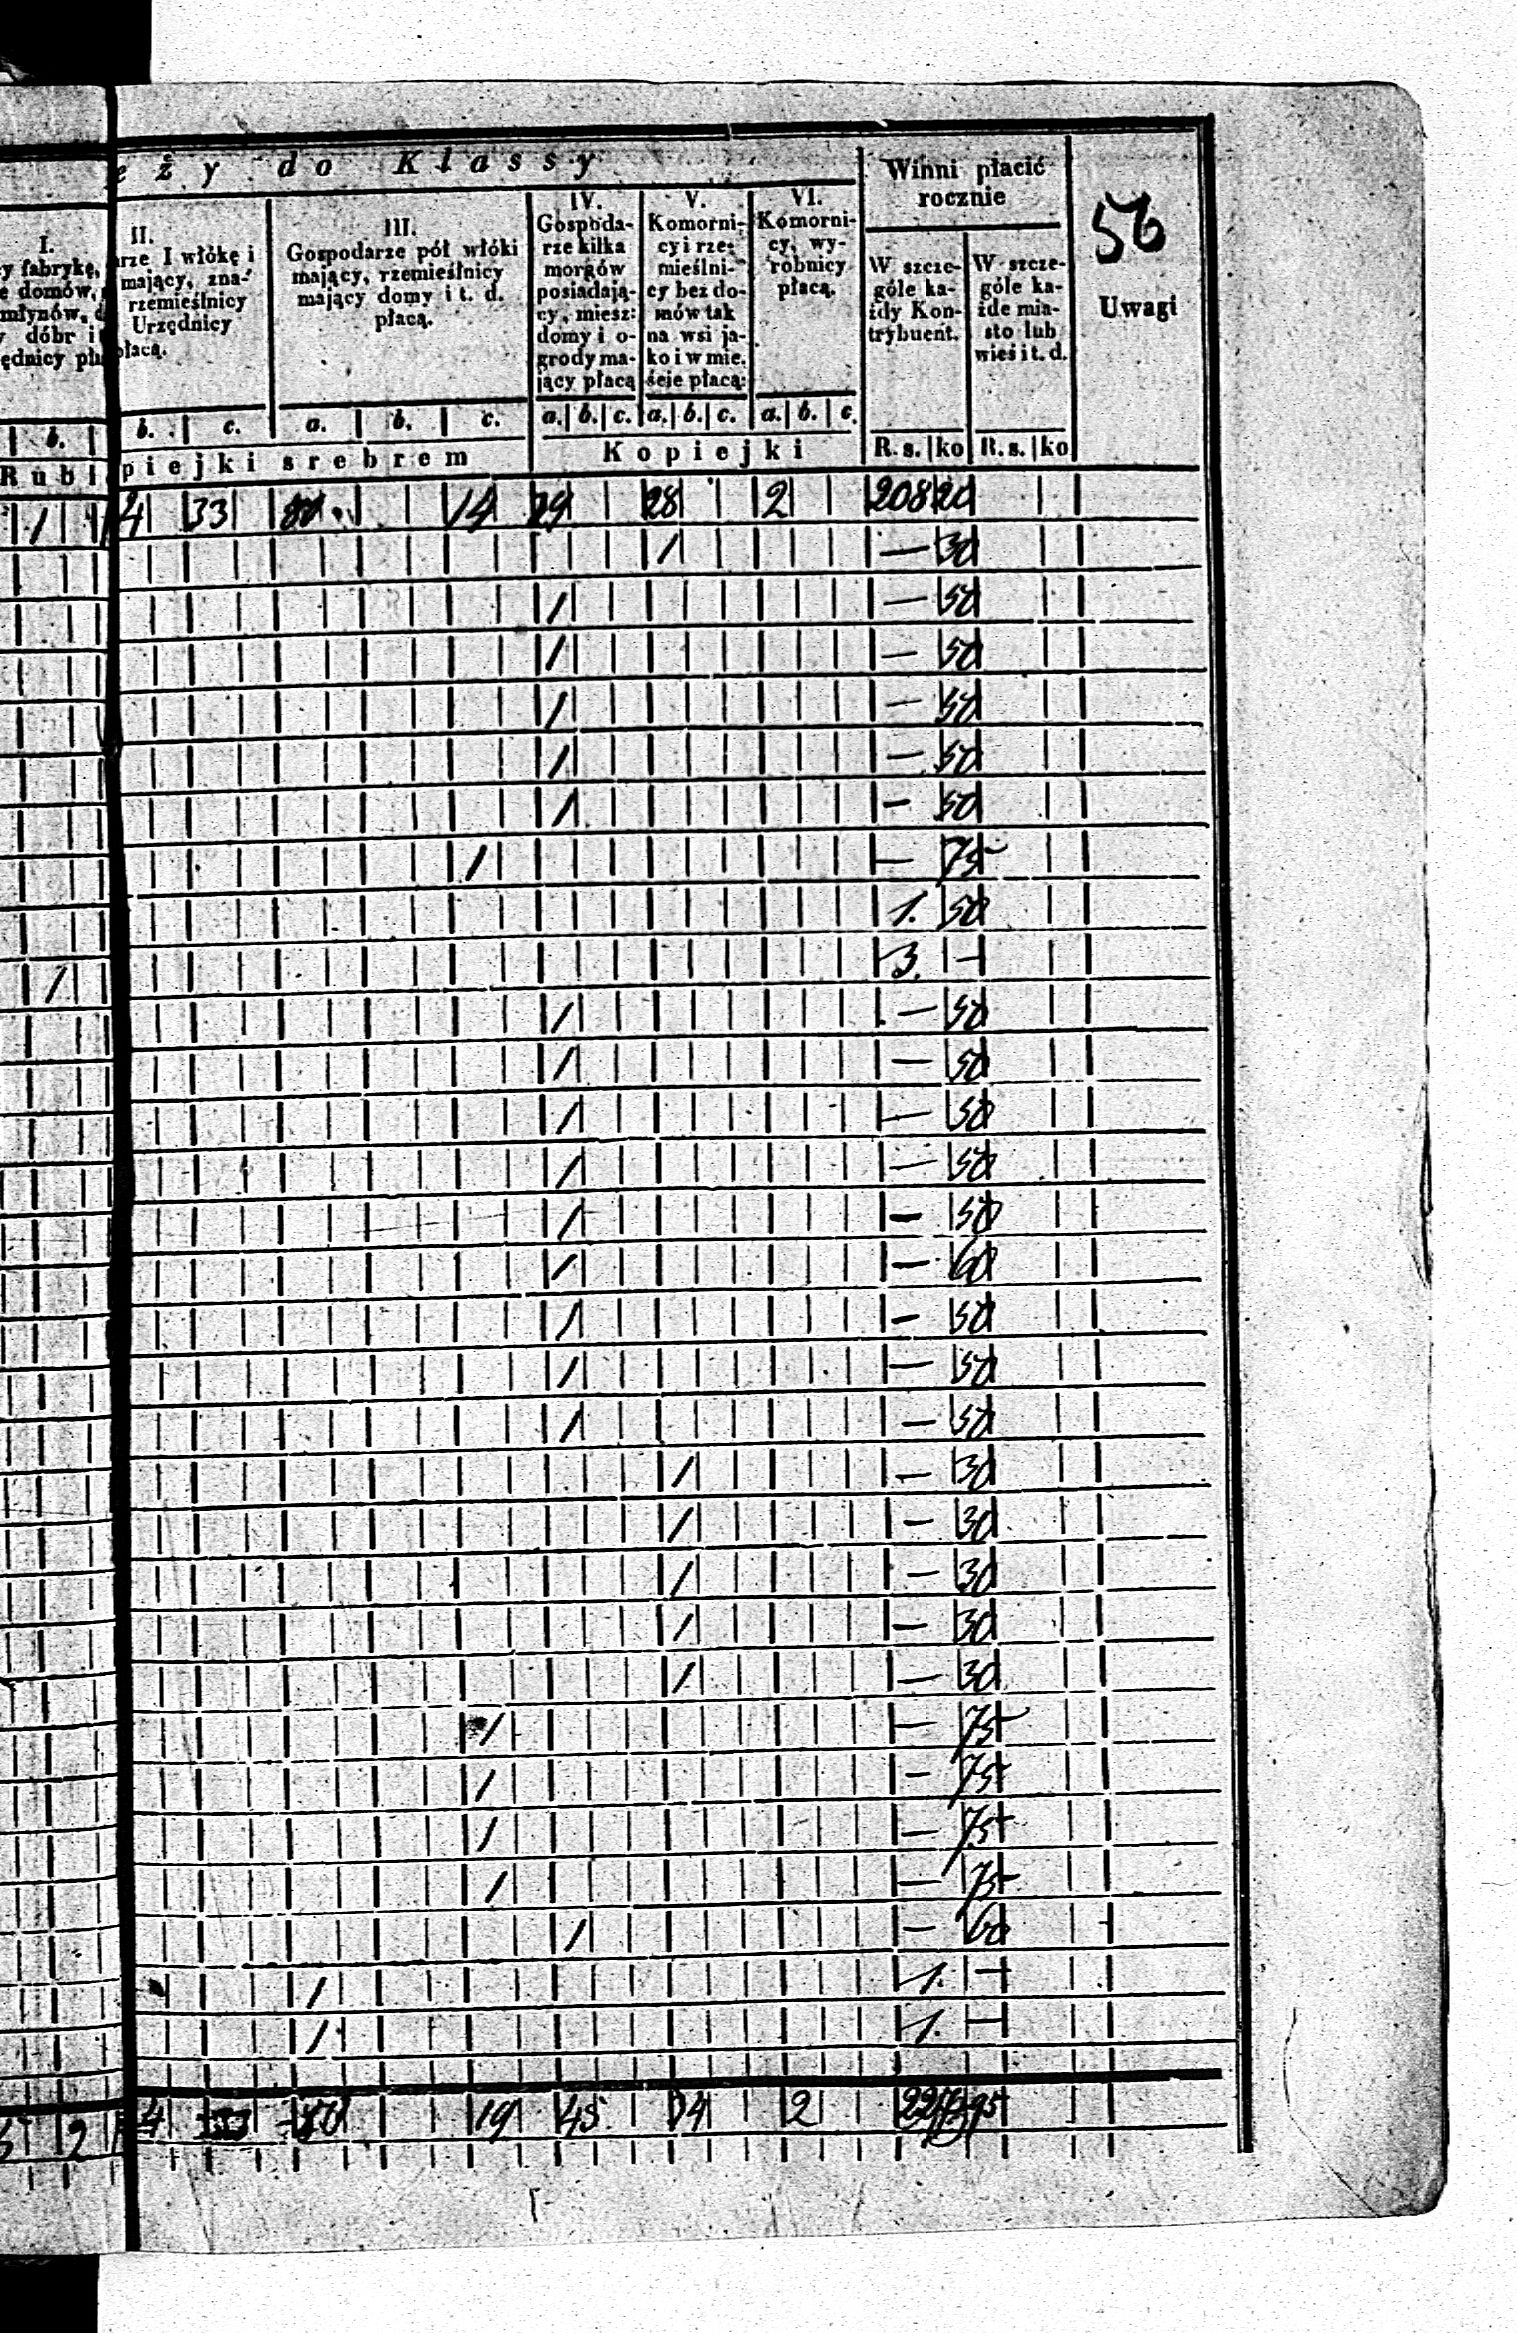 eży do Klassy
Winni płacić rocznie
56
Uwagi
I.
y fabrykę,
e domów,
młynów, d
y dóbr i
ędnicy pła
II.
rze I włókę i
mający, zna-
rzemieślnicy
Urzędnicy
płacą.
III.
Gospodarze pół włóki
mający, rzemieślnicy
mający domy i t. d.
płacą.
IV.
Gospoda-
rze kilka
morgów
posiadają-
cy, miesz:
domy i o-
grody ma-
jący płacą
V.
Komorni-
cy i rze-
mieślni-
cy bez do-
mów tak
na wsi ja-
ko i w mie.
ście płacą:
VI.
Komorni-
cy, wy-
robnicy
płacą.
W szcze-
góle ka-
żdy Kon-
trybuent.
W szcze-
góle ka-
żde mia-
sto lub
wieś i t. d.
b. b. c. a. b. c. a. b. c. a. b. c. a. b. c.
Rubl piejki srebrem Kopiejki R. s. ko R. s. ko
1 4 33 14 29 28 2 208 20
1 — 30
1 — 50
1 — 50
1 — 50
1 — 50
1 — 50
1 — 75
1. 50
1 3. —
1 — 50
1 — 50
1 — 50
1 — 50
1 — 50
1 — 60
1 — 50
1 — 50
1 — 50
1 — 30
1 — 30
1 — 30
1 — 30
1 — 30
1 — 75
1 — 75
1 — 75
1 — 75
1 — 60
1 1. —
1 1. —
2 4 33 19 45 34 2 95